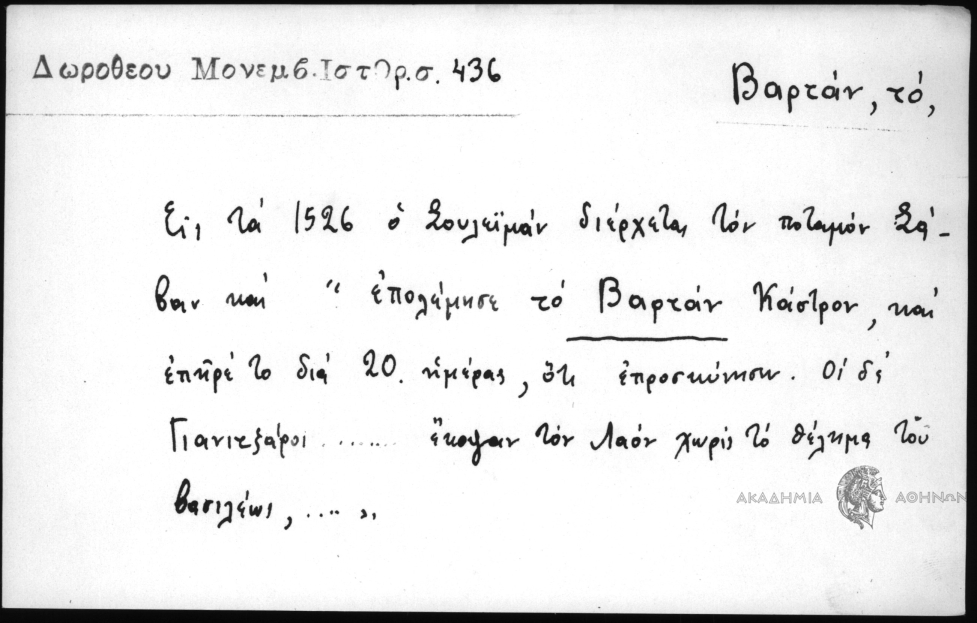 Δωροθεου Μονεμβ.Ιστορ.σ. 436
Βαρτάν, τό,
Εις τά 1526 ὁ Σουλεϊμάν διέρχεται τόν ποταμόν Σά-
βαν καί " ἐπολέμησε τό Βαρτάν Κάστρον, καί
ἐπῆρέ το διά 20. ἡμέρας, ὅτι ἐπροσκύνησαν. Οἱ δέ
Γιανιτζάροι ........ ἔκοψαν τόν Λαόν χωρίς τό θέλημα τοῦ
βασιλέως, ..... "
ΑΚΑΔΗΜΙΑ ΑΘΗΝΩΝ